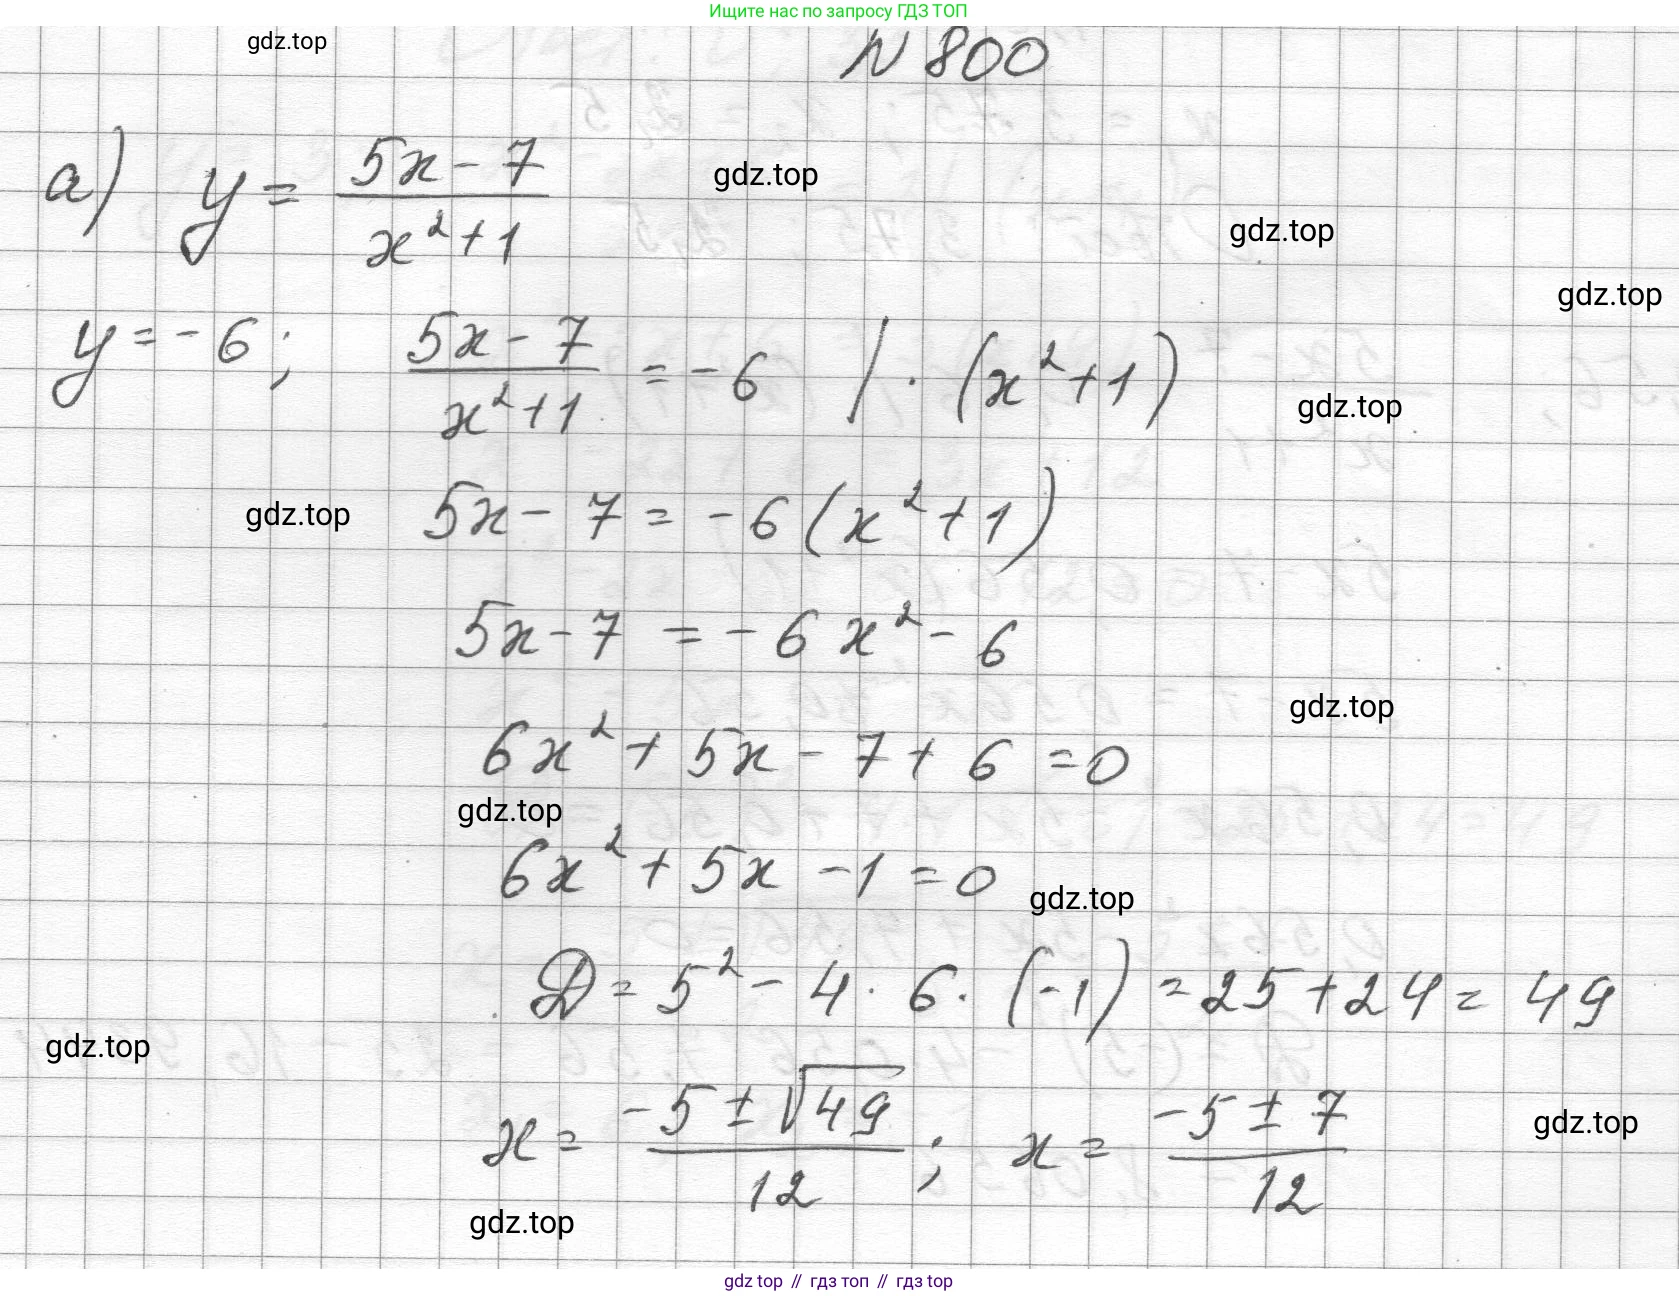 Ищите нас по запросу ГДЗ ТОП
gdz.top
N 800
а) y = (5x - 7)/(x² + 1)
gdz.top
gdz.top
gdz.top
y = -6; (5x - 7)/(x² + 1) = -6 | · (x² + 1)
gdz.top
gdz.top
5x - 7 = -6(x² + 1)
5x - 7 = -6x² - 6
gdz.top
6x² + 5x - 7 + 6 = 0
gdz.top
6x² + 5x - 1 = 0
gdz.top
D = 5² - 4 · 6 · (-1) = 25 + 24 = 49
gdz.top
x = (-5 ± √49)/12; x = (-5 ± 7)/12
gdz.top
gdz.top
gdz top // гдз топ // gdz top